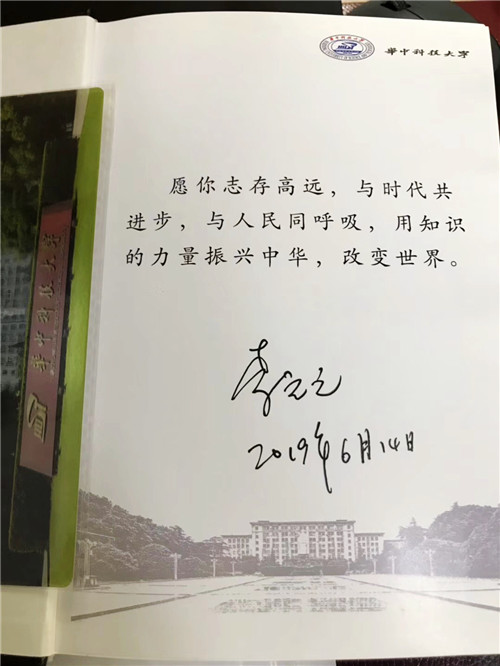 华中科技大学
愿你志存高远，与时代共
进步，与人民同呼吸，用知识
的力量振兴中华，改变世界。
李元元
2019年6月14日
华中科技大学